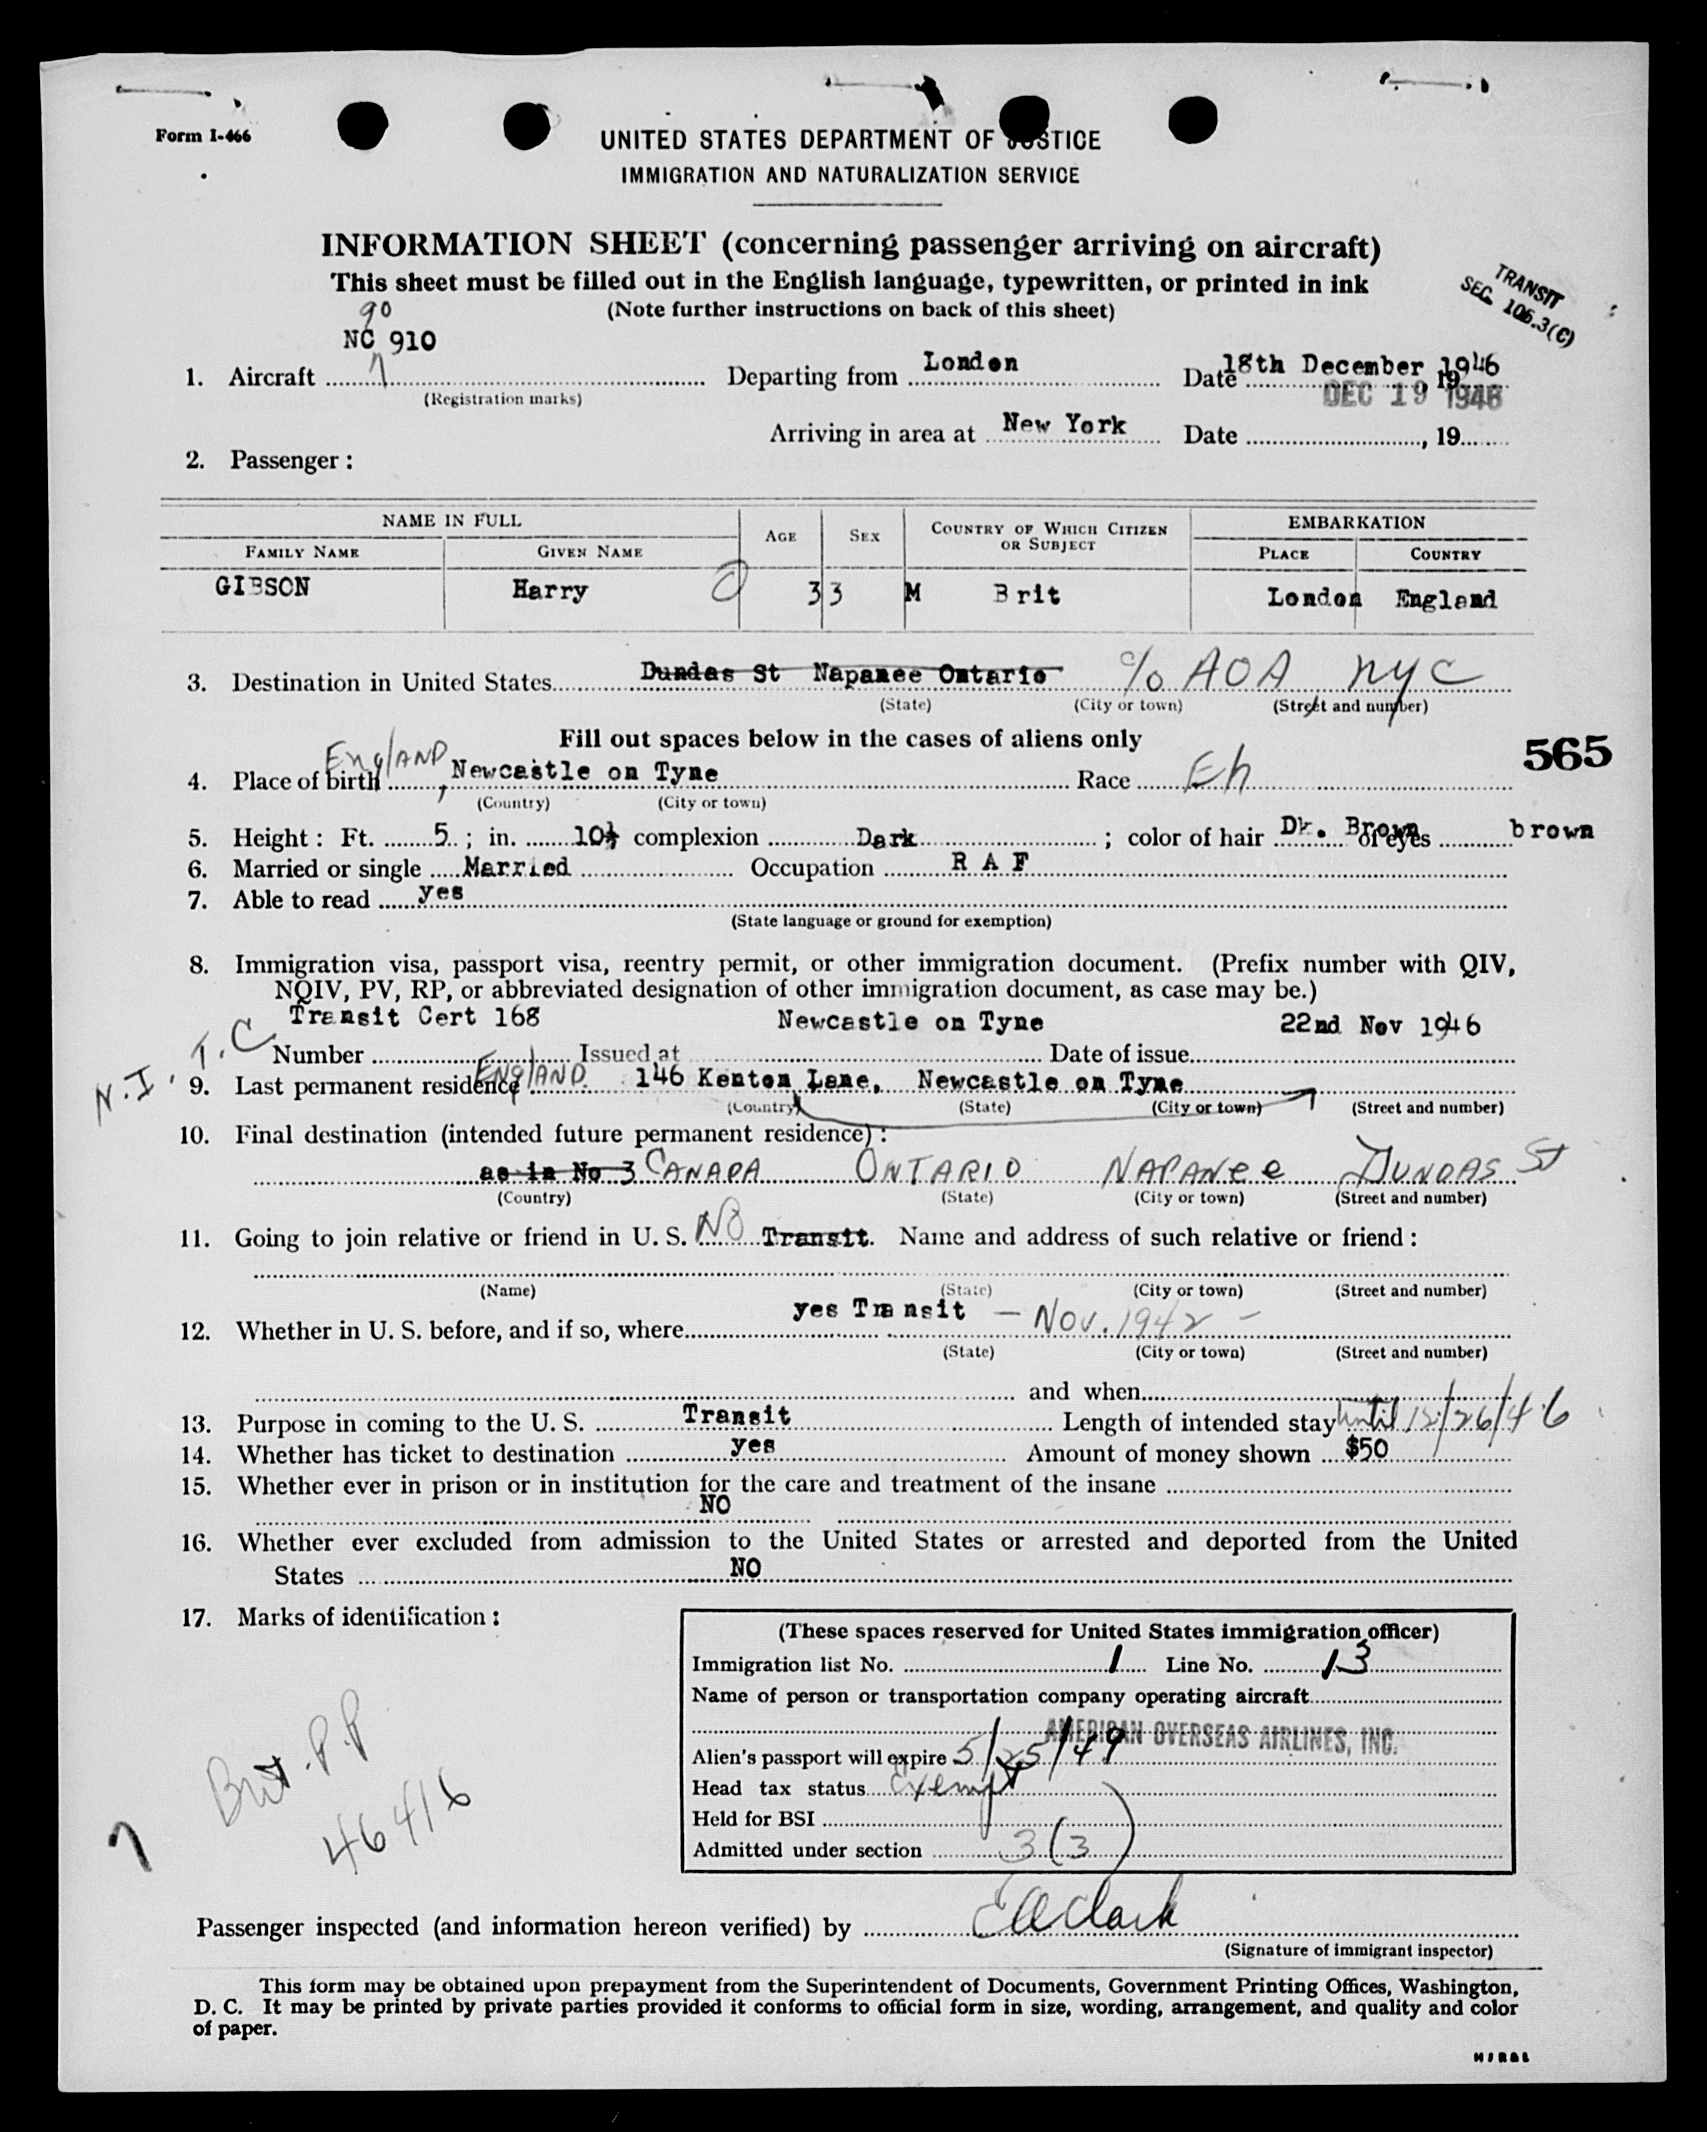 Form I-466
UNITED STATES DEPARTMENT OF JUSTICE
IMMIGRATION AND NATURALIZATION SERVICE
INFORMATION SHEET (concerning passenger arriving on aircraft)
This sheet must be filled out in the English language, typewritten, or printed in ink
(Note further instructions on back of this sheet)
TRANSIT
SEC. 106.3(C)
90
NC 910
1. Aircraft Departing from London Date 18th December 1946
(Registration marks) DEC 19 1946
Arriving in area at New York Date , 19
2. Passenger:
NAME IN FULL AGE SEX COUNTRY OF WHICH CITIZEN OR SUBJECT EMBARKATION
FAMILY NAME GIVEN NAME PLACE COUNTRY
GIBSON Harry 33 M Brit London England
3. Destination in United States Dundas St Napanee Ontario c/o AOA NYC
(State) (City or town) (Street and number)
Fill out spaces below in the cases of aliens only
565
4. Place of birth England, Newcastle on Tyne Race Eh
(Country) (City or town)
5. Height: Ft. 5 ; in. 10½ complexion Dark ; color of hair Dk. Brown of eyes brown
6. Married or single Married Occupation R A F
7. Able to read yes
(State language or ground for exemption)
8. Immigration visa, passport visa, reentry permit, or other immigration document. (Prefix number with QIV,
NQIV, PV, RP, or abbreviated designation of other immigration document, as case may be.)
Transit Cert 168 Newcastle on Tyne 22nd Nov 1946
Number Issued at Date of issue
N.I. T.C
9. Last permanent residence ENGLAND 146 Kenton Lane, Newcastle on Tyne
(Country) (State) (City or town) (Street and number)
10. Final destination (intended future permanent residence):
as in No 3 CANADA ONTARIO NAPANEE DUNDAS St
(Country) (State) (City or town) (Street and number)
11. Going to join relative or friend in U. S. NO Transit. Name and address of such relative or friend:
(Name) (State) (City or town) (Street and number)
12. Whether in U. S. before, and if so, where yes Transit — Nov. 1942 —
(State) (City or town) (Street and number)
and when
13. Purpose in coming to the U. S. Transit Length of intended stay until 12/26/46
14. Whether has ticket to destination yes Amount of money shown $50
15. Whether ever in prison or in institution for the care and treatment of the insane
NO
16. Whether ever excluded from admission to the United States or arrested and deported from the United
States NO
17. Marks of identification:
(These spaces reserved for United States immigration officer)
Immigration list No. 1 Line No. 13
Name of person or transportation company operating aircraft
AMERICAN OVERSEAS AIRLINES, INC.
Alien's passport will expire 5/25/49
Head tax status Exempt
Held for BSI
Admitted under section 3(3)
Brit. P.P
46416
7
Passenger inspected (and information hereon verified) by E A Clark
(Signature of immigrant inspector)
This form may be obtained upon prepayment from the Superintendent of Documents, Government Printing Offices, Washington,
D. C. It may be printed by private parties provided it conforms to official form in size, wording, arrangement, and quality and color
of paper.